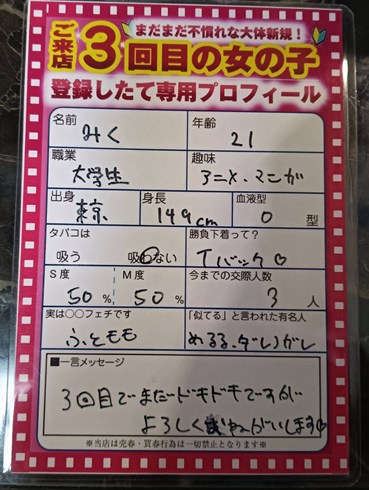 まだまだ不慣れな大体新規！
ご来店3回目の女の子
登録したて専用プロフィール
名前 みく 年齢 21
職業 大学生 趣味 アニメ、マンガ
出身 東京 身長 149cm 血液型 O 型
タバコは 吸う 吸わない 勝負下着って？ Tバック♡
S度 50% M度 50% 今までの交際人数 3人
実は○○フェチです ふともも 「似てる」と言われた有名人 めるる、ダレノガレ
■一言メッセージ
3回目でまだドキドキですが
よろしくおねがいします♡
※当店は売春・買春行為は一切禁止となります※